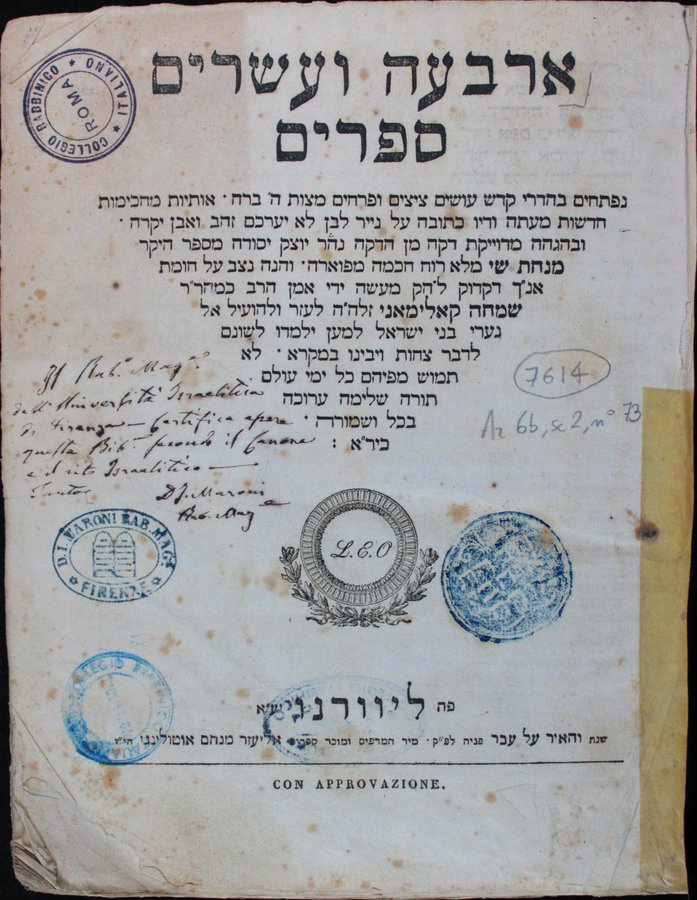 ארבעה ועשרים
ספרים
COLLEGIO RABBINICO ★ ITALIANO ★
ROMA
נפתחים בהדרי קדש עושים ציצים ופרחים מצות ה' ברה · אותיות מחכימות
חדשות מעתה ודיו כתובה על נייר לבן לא יערכם זהב ואבן יקרה ·
ובהגהה מדוייקת דקה מן הדקה נהר יוצק יסודה מספר היקר
מנחת שי מלא רוח חכמה מפוארה · והנה נצב על חומת
אנ״ך דקדוק ל״הק מעשה ידי אמן הרב כמהר״ר
שמחה קאלימאני זלה״ה לעזר ולהועיל אל
נערי בני ישראל למען ילמדו לשונם
לדבר צחות ויבינו במקרא · לא
תמוש מפיהם כל ימי עולם ·
תורה שלימה ערוכה
בכל ושמורה ·
כיר״א :
7614
Az 6b, sc 2, n° 73
Il Rab.º Mag.º
dell'Università Israelitica
di Firenze — Certifica essere
questa Bib.ª secondo il Canone
e il rito Israelitico —
D J. Maroni
Rab. Mag
D. I. MARONI RAB. MAG.
FIRENZE
L.E.O
COLLEGIO
פה ליוורנו יע״א
שנת והאיר על עבר פניה לפ״ק · מיד המדפיס ומוכר ספרים אליעזר מנחם אוטולינגי הי״ו
CON APPROVAZIONE.